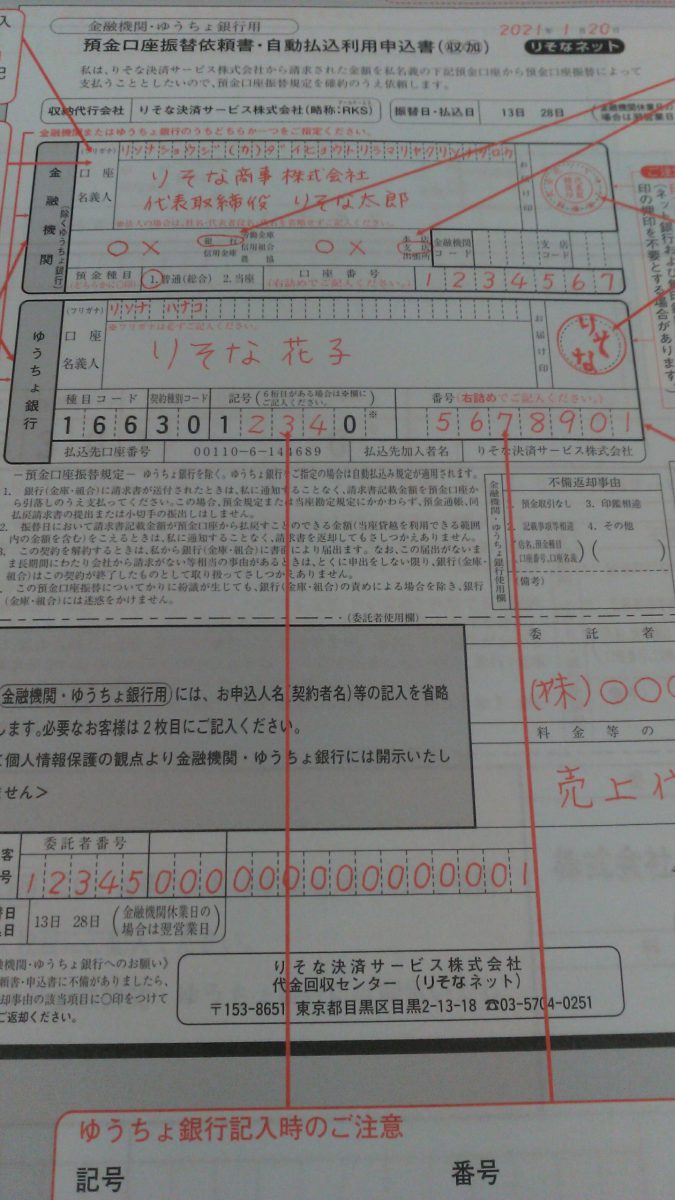 金融機関・ゆうちょ銀行用
2021年1月20日
預金口座振替依頼書・自動払込利用申込書(収加) りそなネット
私は、りそな決済サービス株式会社から請求された金額を私名義の下記預金口座から預金口座振替によって
支払うこととしたいので、預金口座振替規定を確約のうえ依頼します。
収納代行会社 りそな決済サービス株式会社(略称:RKS) 振替日・払込日 13日 28日
金融機関またはゆうちょ銀行のうちどちらか一つをご指定ください。
金融機関
(除くゆうちょ銀行)
(フリガナ) リソナショウジ(カ)ダイヒョウトリシマリヤクリソナタロウ
口座名義人
りそな商事株式会社
代表取締役 りそな太郎
お届け印
○× 銀行 労働金庫 信用金庫 信用組合 農協 ○× 本店 支店 出張所 金融機関コード 支店コード
預金種目 1.普通(総合) 2.当座 口座番号 (右詰めでご記入ください。) 1234567
ゆうちょ銀行
(フリガナ) リソナ ハナコ
※フリガナは必ずご記入ください。
口座名義人
りそな花子
お届け印
りそな
種目コード 契約種別コード 記号(6桁目がある場合は※欄にご記入ください。) 番号(右詰めでご記入ください。)
166 30 12340※ 5678901
払込先口座番号 00110-6-144689 払込先加入者名 りそな決済サービス株式会社
―預金口座振替規定― ゆうちょ銀行を除く。ゆうちょ銀行をご指定の場合は自動払込み規定が適用されます。
1. 銀行(金庫・組合)に請求書が送付されたときは、私に通知することなく、請求書記載金額を預金口座か
ら引落しのうえ支払ってください。この場合、預金規定または当座勘定規定にかかわらず、預金通帳、同
払戻請求書の提出または小切手の振出しはしません。
2. 振替日において請求書記載金額が預金口座から払戻すことのできる金額(当座貸越を利用できる範囲
内の金額を含む)をこえるときは、私に通知することなく、請求書を返却してもさしつかえありません。
3. この契約を解約するときは、私から銀行(金庫・組合)に書面により届出ます。なお、この届出がないま
ま長期間にわたり会社から請求がない等相当の事由があるときは、とくに申出をしない限り、銀行(金庫・
組合)はこの契約が終了したものとして取り扱ってさしつかえありません。
この預金口座振替についてかりに紛議が生じても、銀行(金庫・組合)の責めによる場合を除き、銀行
(金庫・組合)には迷惑をかけません。
金融機関・ゆうちょ銀行使用欄
不備返却事由
1. 預金取引なし 3. 印鑑相違
2. 記載事項等相違 4. その他
(店名、預金種目、口座番号、口座名義)
(備考)
(委託者使用欄)
金融機関・ゆうちょ銀行用には、お申込人名(契約者名)等の記入を省略
します。必要なお客様は2枚目にご記入ください。
個人情報保護の観点より金融機関・ゆうちょ銀行には開示いたし
ません>
委託者
(株)○○○
料金等の
売上代
委託者番号
12345000000000000001
13日 28日 (金融機関休業日の場合は翌営業日)
金融機関・ゆうちょ銀行へのお願い》
頼書・申込書に不備がありましたら、
却事由の該当項目に○印をつけて
ご返却ください。
りそな決済サービス株式会社
代金回収センター (りそなネット)
〒153-8651 東京都目黒区目黒2-13-18 ☎03-5704-0251
ゆうちょ銀行記入時のご注意
記号 番号